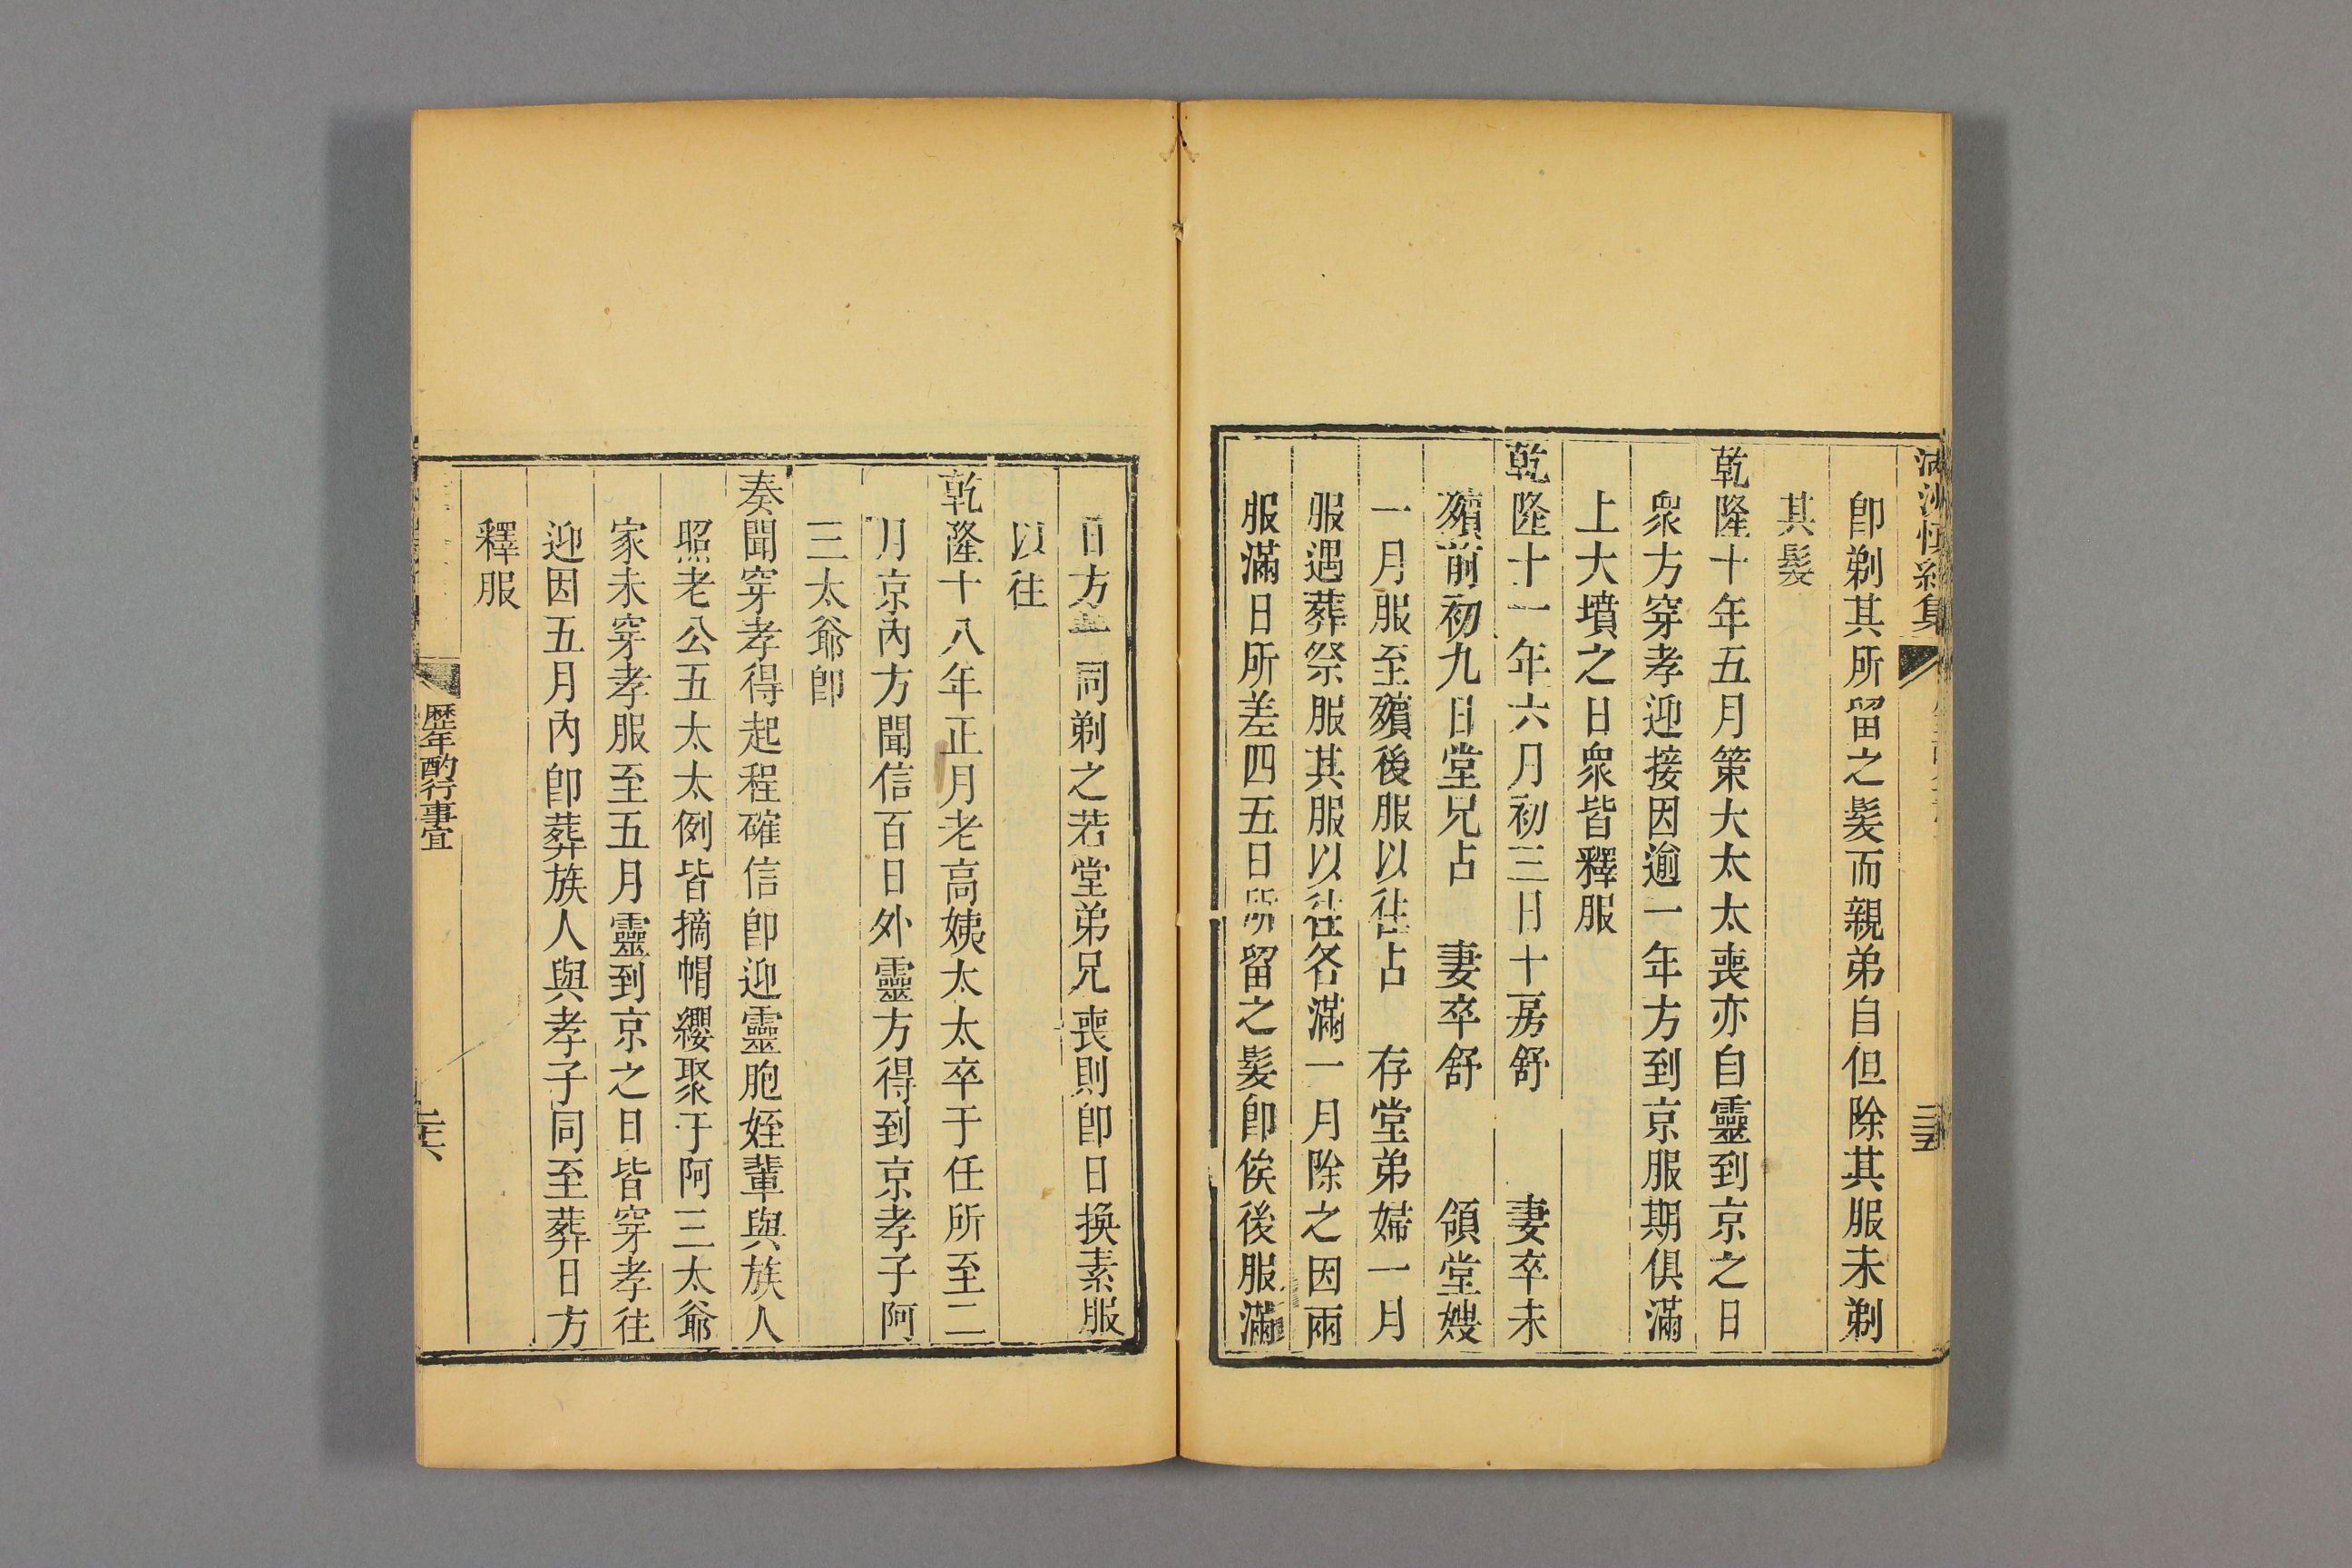 滿洲慎終集
二十五
卽剃其所留之髮而親弟自但除其服未剃
其髮
乾隆十年五月策大太太喪亦自靈到京之日
衆方穿孝迎接因逾一年方到京服期俱滿
上大墳之日衆皆釋服
乾隆十一年六月初三日十房舒 妻卒未
殯前初九日堂兄占 妻卒舒 領堂嫂
一月服至殯後服以往占 存堂弟婦一月
服遇葬祭服其服以往各滿一月除之因兩
服滿日所差四五日所留之髮卽俟後服滿
日方 同剃之若堂弟兄喪則卽日換素服
以往
乾隆十八年正月老高姨太太卒于任所至二
月京內方聞信百日外靈方得到京孝子阿
三太爺卽
奏聞穿孝得起程確信卽迎靈胞姪輩與族人
照老公五太太例皆摘帽纓聚于阿三太爺
家未穿孝服至五月靈到京之日皆穿孝往
迎因五月內卽葬族人與孝子同至葬日方
釋服
歷年酌行事宜
二十六